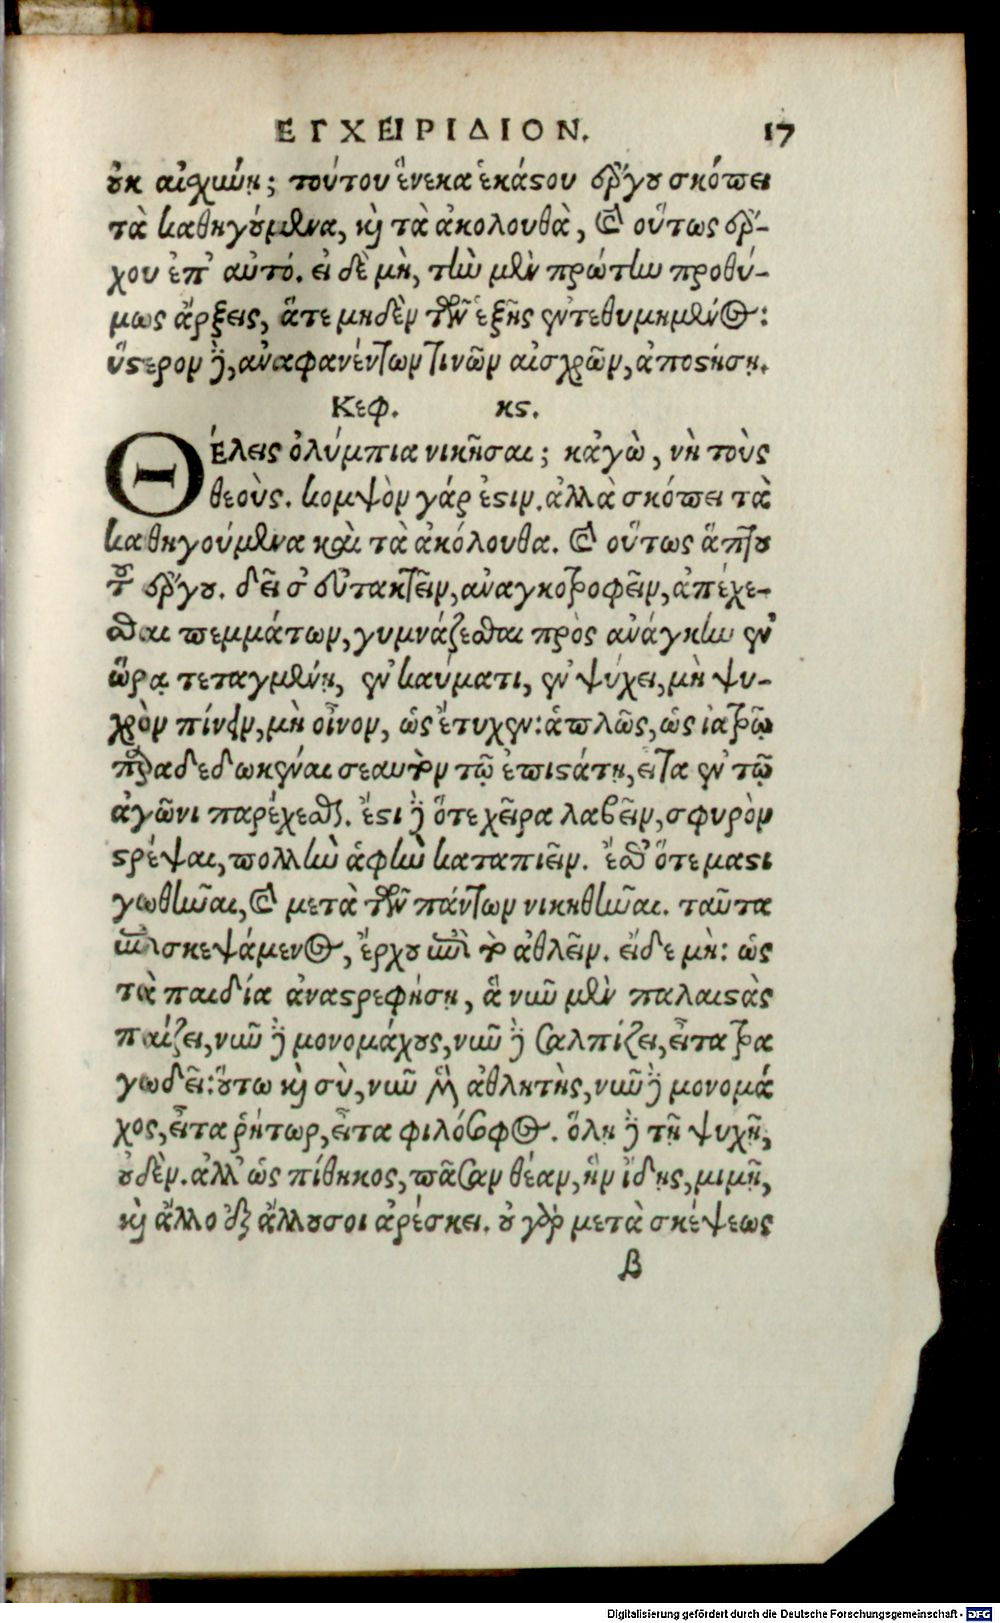 ΕΓΧΕΙΡΙΔΙΟΝ. 17
οὐκ αἰσχύνῃ; τούτου ἕνεκα ἑκάστου ἔργου σκόπει
τὰ καθηγούμενα, καὶ τὰ ἀκολουθὰ, καὶ οὕτως ἔρ-
χου ἐπ' αὐτό. εἰ δὲ μὴ, τὴν μὲν πρώτην προθύ-
μως ἄρξεις, ἅτε μηδὲν τῶν ἑξῆς ἐντεθυμημένος:
ὕστερον δὲ, ἀναφανέντων τινῶν αἰσχρῶν, ἀποστήσῃ.
Κεφ. κς.
ΘΈλεις ὀλύμπια νικῆσαι; κἀγὼ, νὴ τοὺς
θεοὺς. κομψὸν γάρ ἐστιν. ἀλλὰ σκόπει τὰ
καθηγούμενα καὶ τὰ ἀκόλουθα. καὶ οὕτως ἅπτου
τοῦ ἔργου. δεῖ σ' εὐτακτεῖν, ἀναγκοτροφεῖν, ἀπέχε-
σθαι πεμμάτων, γυμνάζεσθαι πρὸς ἀνάγκην ἐν
ὥρᾳ τεταγμένῃ, ἐν καύματι, ἐν ψύχει, μὴ ψυ-
χρὸν πίνειν, μὴ οἶνον, ὡς ἔτυχεν: ἁπλῶς, ὡς ἰατρῷ
παραδεδωκέναι σεαυτὸν τῷ ἐπιστάτῃ, εἶτα ἐν τῷ
ἀγῶνι παρέχεσθαι. ἔστι δὲ ὅτε χεῖρα λαβεῖν, σφυρὸν
στρέψαι, πολλὴν ἁφὴν καταπιεῖν. ἔσθ' ὅτε μαστι
γωθῆναι, καὶ μετὰ τῶν πάντων νικηθῆναι. ταῦτα
ἐπισκεψάμενος, ἔρχου ἐπὶ τὸ ἀθλεῖν. εἰδε μὴ: ὡς
τὰ παιδία ἀναστρεφήσῃ, ἃ νῦν μὲν παλαιστὰς
παίζει, νῦν δὲ μονομάχους, νῦν δὲ σαλπίζει, εἶτα τρα
γωδεῖ: οὕτω καὶ σὺ, νῦν μὲν ἀθλητὴς, νῦν δὲ μονομά
χος, εἶτα ῥήτωρ, εἶτα φιλόσοφος. ὅλῃ δὲ τῇ ψυχῇ,
οὐδὲν. ἀλλ' ὡς πίθηκος, πᾶσαν θέαν, ἣν ἴδῃς, μιμῇ,
καὶ ἄλλο ἐξ ἄλλου σοι ἀρέσκει. οὐ γὰρ μετὰ σκέψεως
β
Digitalisierung gefördert durch die Deutsche Forschungsgemeinschaft - DFG